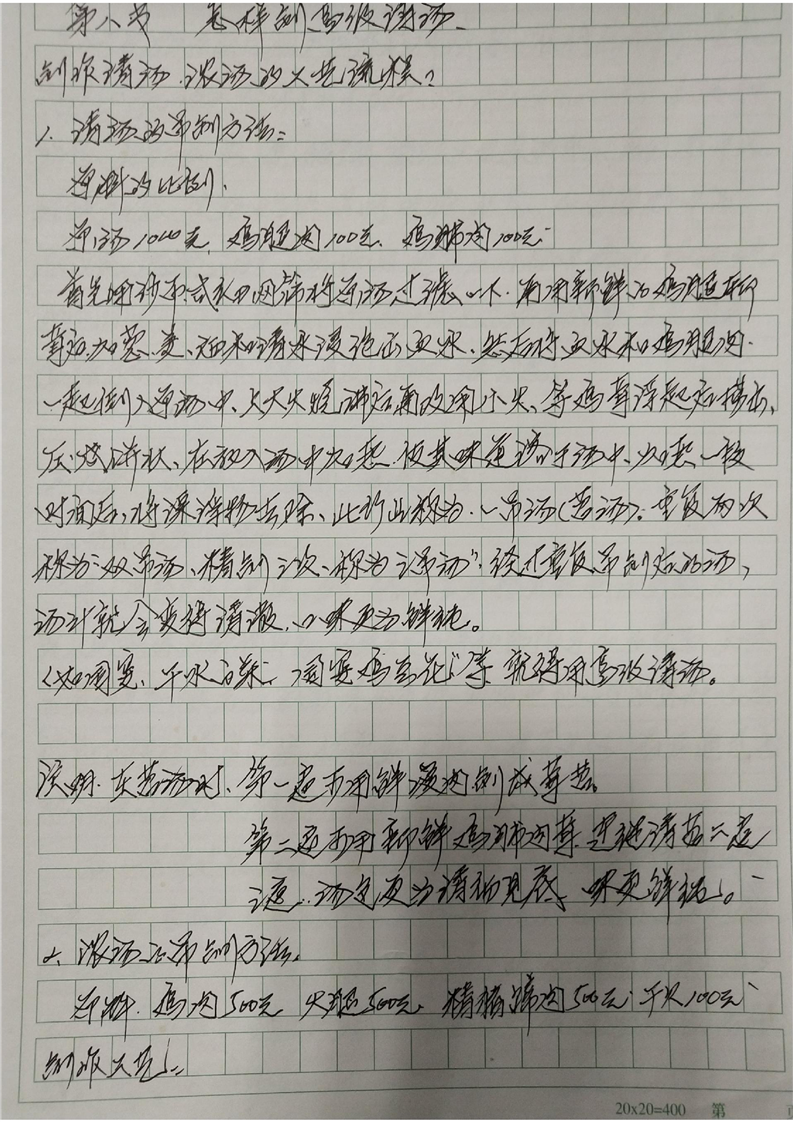 第八节 怎样制高级清汤、
制作清汤、浓汤的工艺流程：
1、清汤的吊制方法：
原料的比例、
原汤1000克、鸡腿肉100克、鸡脯肉100克
首先用纱布或利用网筛将原汤过滤一下、再用新鲜的鸡腿斩
茸后加葱、姜、酒和清水浸泡出血水、然后将血水和鸡腿肉
一起倒入原汤中、上大火烧沸后再改用小火、等鸡茸浮起后捞出、
压成饼状、在放入汤中加热、使其味道溶于汤中、加热一段
时间后、将漂浮物去除、此行业称为、一吊汤(茗汤)、重复两次
称为“双吊汤、精制三次、称为“三吊汤”、经过重复吊制后的汤、
汤汁就会变得清澈、口味更为鲜纯。
《如国宴、开水白菜、国宴鸡豆花》等就得用高级清汤。
说明、在茗汤时、第一起步用鲜腿肉制成茸茗。
第二起步用新鲜鸡脯肉茸、
三遍、汤色更为清彻见底、味更鲜纯。
2、浓汤的吊制方法。
原料、鸡肉500克 火腿500克、精猪蹄肉500克、干贝100克
制作工艺：
20x20=400 第 页